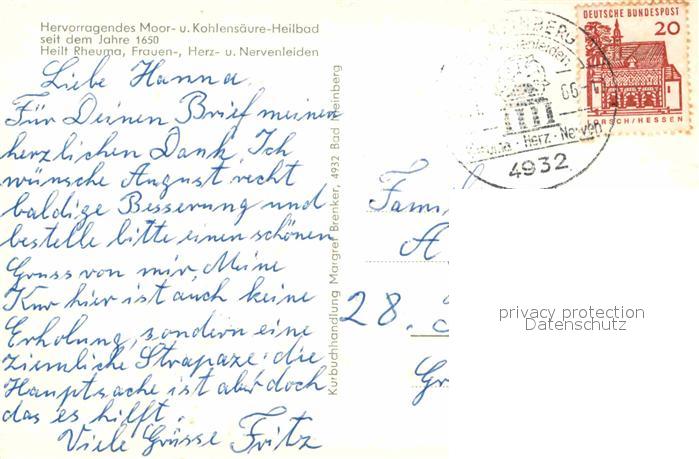 Hervorragendes Moor- u. Kohlensäure-Heilbad
seit dem Jahre 1650
Heilt Rheuma, Frauen-, Herz- u. Nervenleiden
Liebe Hanna
Für Deinen Brief meinen
herzlichen Dank. Ich
wünsche August recht
baldige Besserung und
bestelle bitte einen schönen
Gruss von mir. Meine
Kur hier ist auch keine
Erholung, sondern eine
ziemliche Strapaze. die
Hauptsache ist aber doch
das es hilft.
Viele Grüsse Fritz
Kurbuchhandlung Margret Brenker, 4932 Bad Meinberg
DEUTSCHE BUNDESPOST
20
RSCH/HESSEN
66
Herz - Nerven
4932
Fam.
A
28.
Gr
privacy protection
Datenschutz